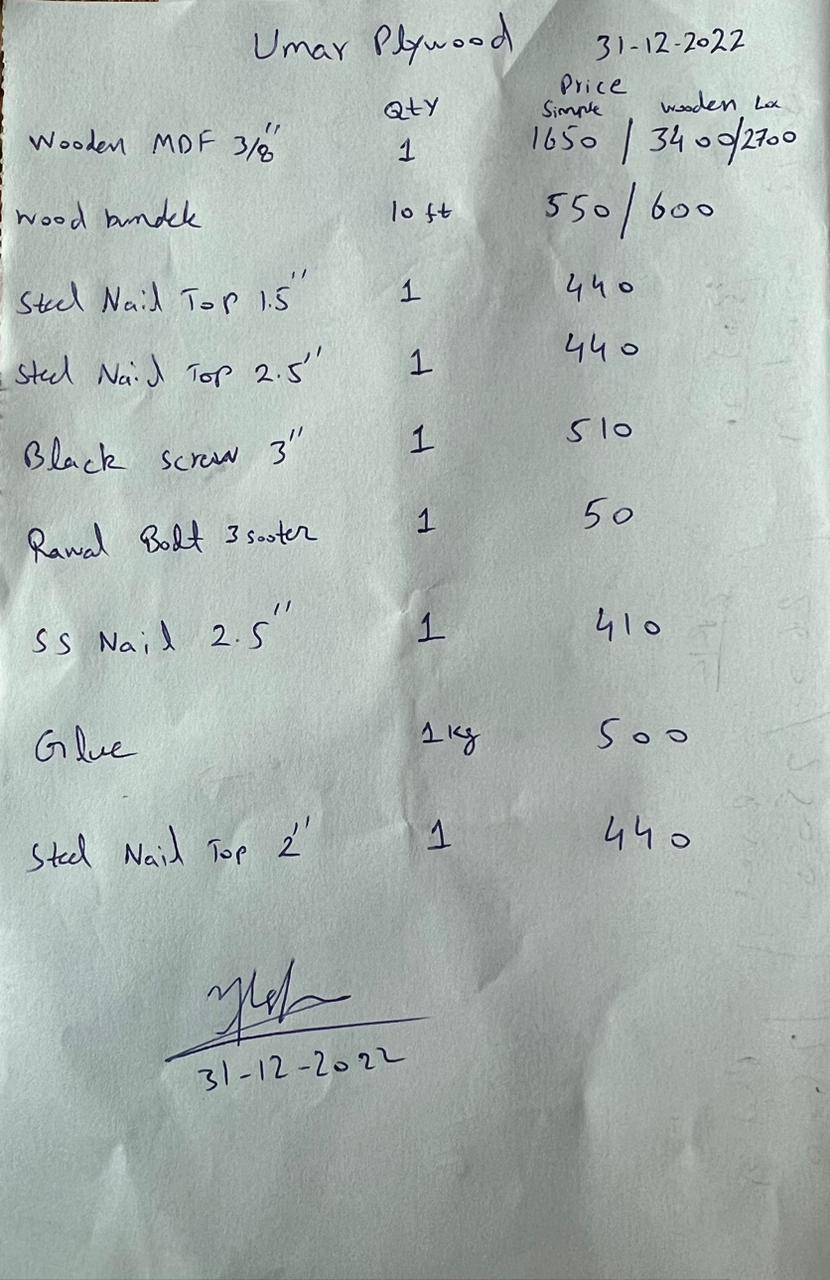 Umar Plywood 31-12-2022
Price
Qty Simple wooden
Wooden MDF 3/8" 1 1650 / 3400/2700
Wood 10 ft 550/600
Steel Nail Top 1.5" 1 440
Steel Nail Top 2.5" 1 440
Black screw 3" 1 510
Rawal Bolt 3 sooter 1 50
SS Nail 2.5" 1 410
Glue 1 kg 500
Steel Nail Top 2" 1 440
31-12-2022